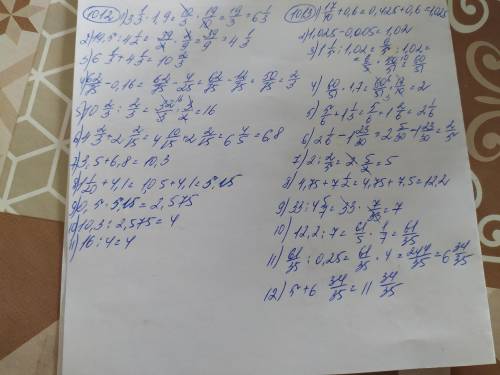 1012) 1) 3 1/3 · 1,9 = 10/3 · 19/10 = 19/3 = 6 1/3
2) 19,5 : 4 1/2 = 39/2 · 2/9 = 39/9 = 4 1/3
3) 6 1/3 + 4 1/3 = 10 2/3
4) 62/75 - 0,16 = 62/75 - 4/25 = 62/75 - 12/75 = 50/75 = 2/3
5) 10 2/3 : 2/3 = 32/3 · 3/2 = 16
6) 4 2/3 + 2 2/15 = 4 10/15 + 2 2/15 = 6 4/5 = 6,8
7) 3,5 + 6,8 = 10,3
8) 1 1/20 + 4,1 = 10,5 + 4,1 = 5,15
9) 0,5 · 5,15 = 2,575
10) 10,3 : 2,575 = 4
11) 16 : 4 = 4
1013) 1) 17/40 + 0,6 = 0,425 + 0,6 = 1,025
2) 1,025 - 0,005 = 1,02
4) 60/51 · 1,7 = 60/51 · 17/10 = 2
5) 5/6 + 1 1/3 = 5/6 + 1 2/6 = 2 1/6
6) 2 1/6 - 1 23/30 = 2 5/30 - 1 23/30 = 2/5
7) 2 : 2/5 = 2 · 5/2 = 5
8) 4,75 + 7 1/2 = 4,75 + 7,5 = 12,2
9) 33 : 4 5/7 = 33 · 7/33 = 7
10) 12,2 : 7 = 61/5 · 1/7 = 61/35
11) 61/35 : 0,25 = 61/35 · 4 = 244/35 = 6 34/35
12) 5 + 6 34/35 = 11 34/35